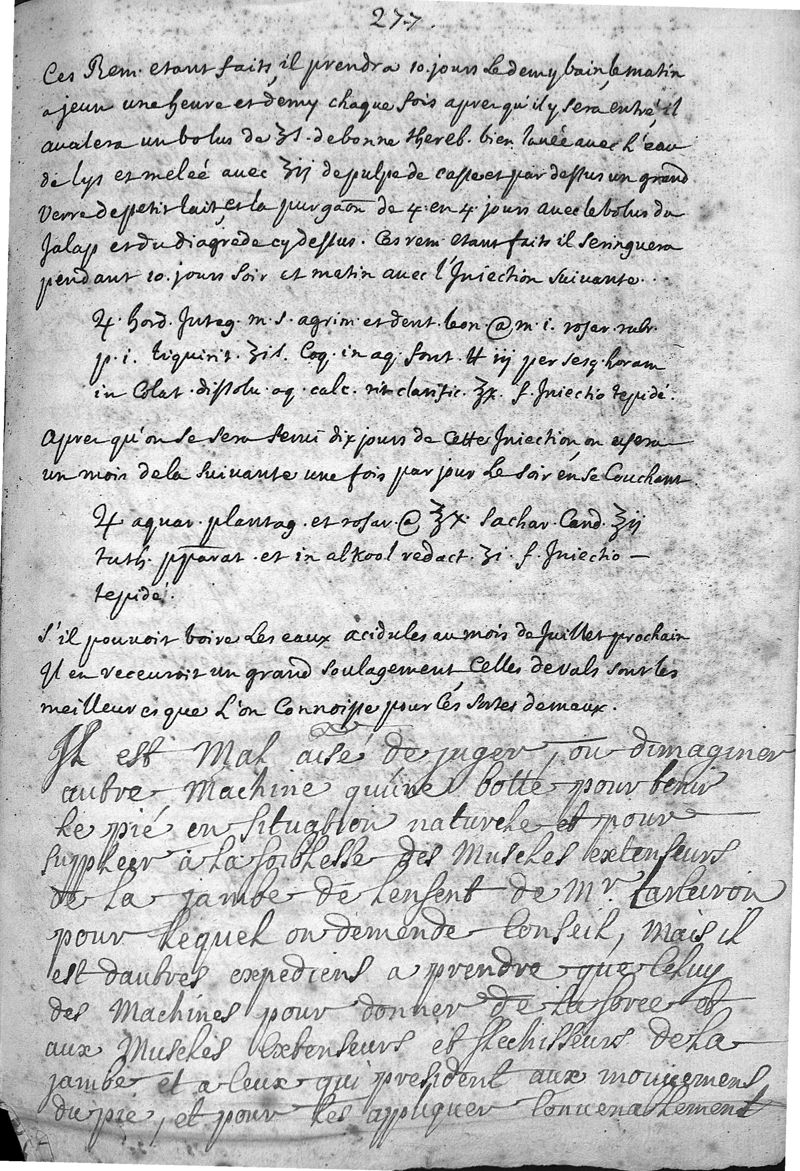 277.
Ces Rem. etant faits, il prendra 10. jours le demy bain, le matin
a jeun une heure et demy chaque fois apres qu'il y sera entré, il
avalera un bolus de ʒ1. de bonne thereb. bien lavée avec l'eau
de lys et meleé avec ʒij de pulpe de casse et par dessus un grand
verre de petit lait, et la purgaõn de 4. en 4. jours avec le bolus du
Jalap et du diagrede cy dessus. Ces rem. etant faits il seringuera
pendant 10. jours soir et matin avec l'Iniection suivante..
♃. hord. Integ. m. s. agrim. et dent. leon. @ m. i. rosar. rubr.
p. i. liquirit. ʒis. Coq. in aq. font. ℔ iij per sesq. horam
in Colat. dissolu. aq. calc. rit clarific. ℥x. f. Iniectio tepidé.
Apres qu'on se sera servi dix jours de cette Iniection, on usera
un mois de la suivante une fois par jour le soir en se couchant
♃ aquar. plantag. et rosar. @ ℥x. sachar. Cand. ʒij
tuth. pp̃arat. et in alkool redact. ʒi. f. Iniectio —
tepidé.
S'il pouvoit boire les eaux acidules au mois de Juillet prochain
Il en recevroit un grand soulagement celles de vals sont les
meilleures que l'on Connoisse pour ces sortes de maux.
Il est Mal aisé de juger, ou dimaginer
autre Machine quune botte pour tenir
le pié en situation naturele et pour
suppleer à la foiblesse des Muscles extenseurs
de la jambe de lenfent de Mr. Tarteiron
pour lequel on demende Conseil, Mais il
est dautres expediens a prendre que Celuy
des Machines pour donner de la force et
aux Muscles extenseurs et flechisseurs de la
jambe et a Ceux qui president aux mouvemens
du pié, et pour les appliquer Convenablement